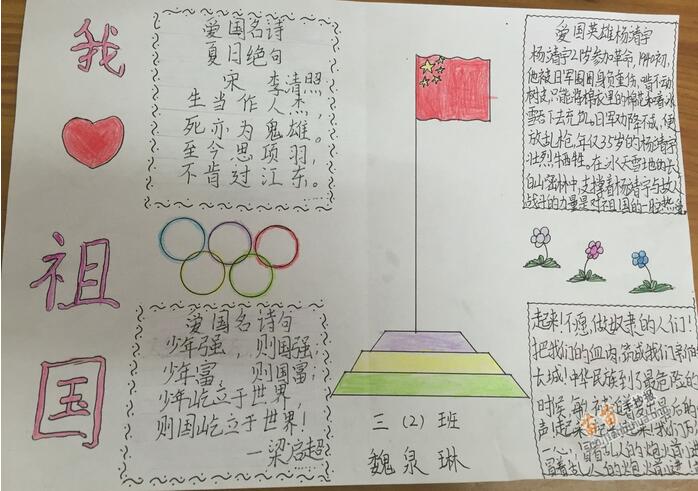 我
祖
国
爱国名诗
夏日绝句
宋 李清照
生当作人杰，
死亦为鬼雄。
至今思项羽，
不肯过江东。
爱国名诗句
少年强，则国强；
少年富，则国富；
少年屹立于世界，
则国屹立于世界！
—梁启超
三（2）班
魏泉琳
爱国英雄杨靖宇
杨靖宇21岁参加革命，1940初，
他被日军围困身负重伤，啃不动
树皮，只能将棉衣里的棉花和着冰
雪吞下去充饥。日军劝降不成，便
放乱枪，年仅35岁的杨靖宇
壮烈牺牲。在冰天雪地的长
白山密林中，支撑着杨靖宇与敌人
战斗的力量是对祖国的一腔热
起来！不愿做奴隶的人们！
把我们的血肉，筑成我们新的
长城！中华民族到了最危险的
时候
声！起来
一心，冒着敌人的炮火前进
冒着敌人的炮火前进